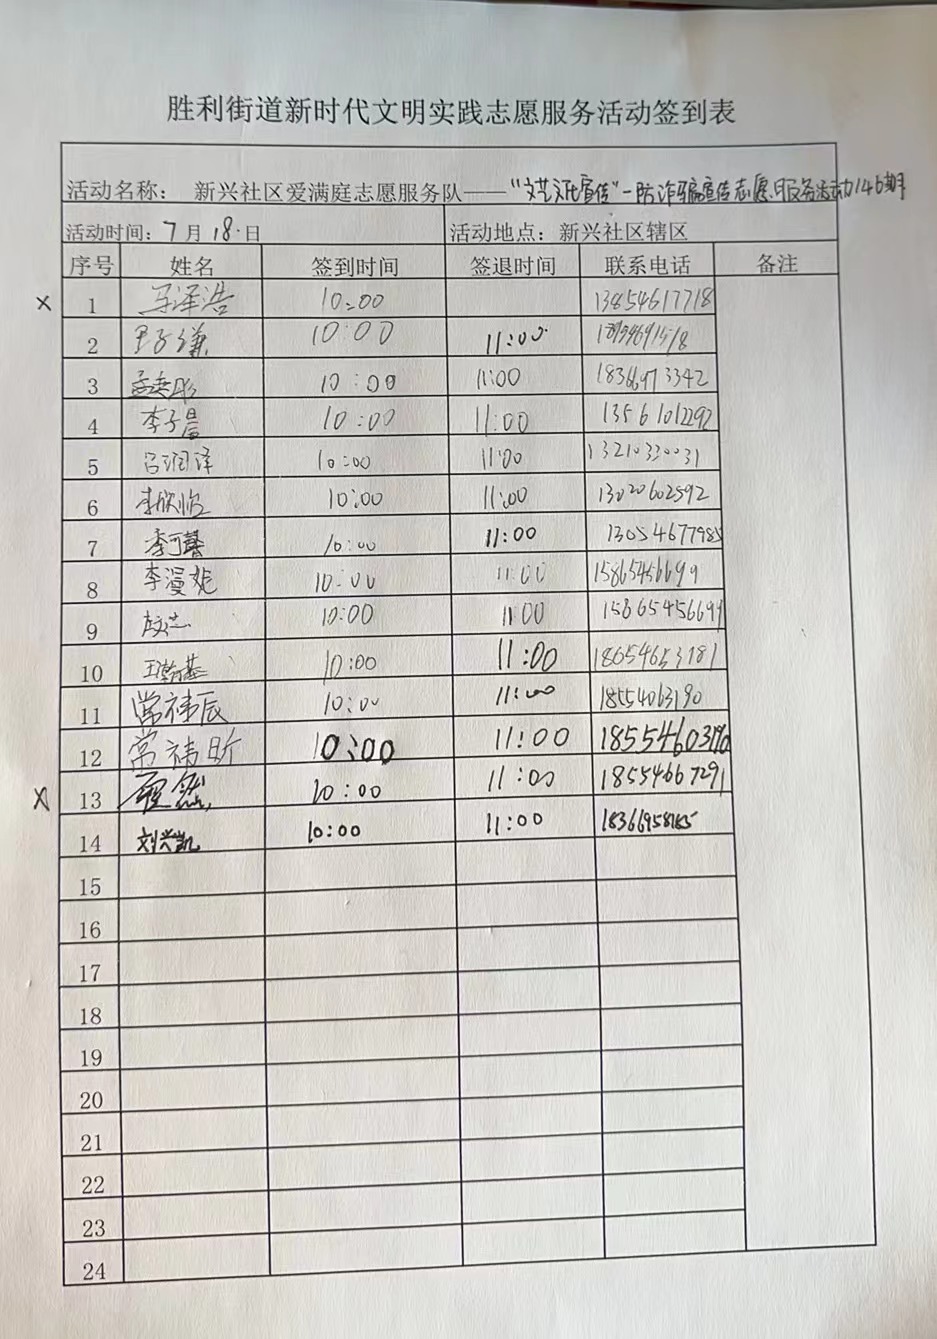 胜利街道新时代文明实践志愿服务活动签到表
活动名称： 新兴社区爱满庭志愿服务队——“文艺汇宣传”－防诈骗宣传志愿服务活动146期
活动时间：7月18日 活动地点：新兴社区辖区
序号 姓名 签到时间 签退时间 联系电话 备注
× 1 马泽浩 10:00 13854617718
2 王子谦 10:00 11:00
3 10:00 11:00 18366973342
4 李子晨 10:00 11:00 13561012292
5 吕润泽 10:00 11:00 13210330031
6 李欣怡 10:00 11:00 13020602592
7 李可馨 10:00 11:00 13054677985
8 李漫妮 10:00 11:00 15865456699
9 10:00 11:00 15865456699
10 10:00 11:00 18654653181
11 常祎辰 10:00 11:00 18554063190
12 常祎昕 10:00 11:00 18554603190
× 13 10:00 11:00 18554667291
14 刘兴凯 10:00 11:00 18366958185
15
16
17
18
19
20
21
22
23
24